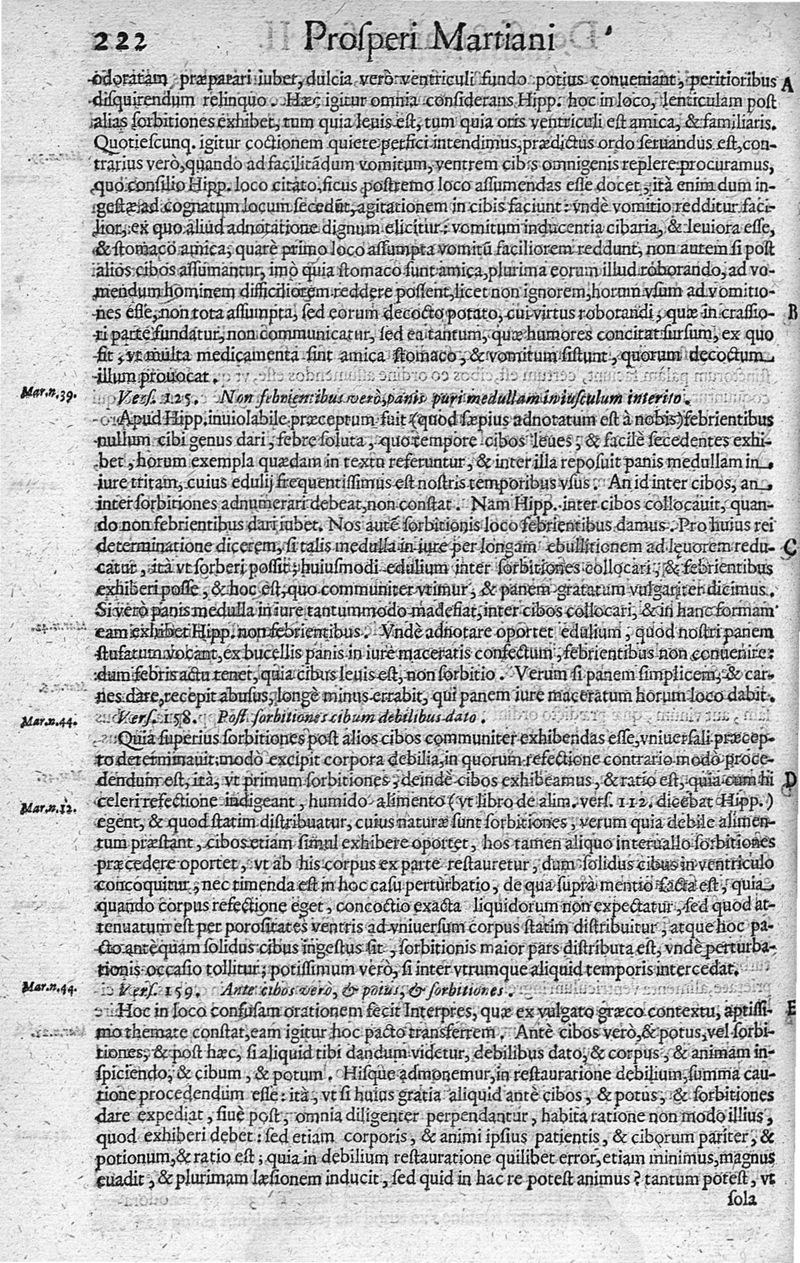 222 Prosperi Martiani
odoratam præparari iubet, dulcia verò ventriculi fundo potius conueniant, peritioribus A
disquirendum relinquo. Hæc igitur omnia considerans Hipp. hoc in loco, lenticulam post
alias sorbitiones exhibet, tum quia leuis est, tum quia oris ventriculi est amica, & familiaris.
Quotiescunq. igitur coctionem quiete perfici intendimus, prædictus ordo seruandus est, con-
trarius verò, quando ad facilitãdum vomitum, ventrem cibis omnigenis replere procuramus,
quo consilio Hipp. loco citato, ficus postremo loco assumendas esse docet; ità enim dum in-
gestæ ad cognatum locum secedũt, agitationem in cibis faciunt: vndè vomitio redditur faci-
lior, ex quo aliud adnotatione dignum elicitur: vomitum inducentia cibaria, & leuiora esse,
& stomaco amica, quarè primo loco assumpta vomitũ faciliorem reddunt, non autem si post
alios cibos assumantur, imò quia stomaco sunt amica, plurima eorum illud roborando, ad vo-
mendum hominem difficiliorem reddere possent, licet non ignorem, horum vsum ad vomitio-
nes esse, non tota assumpta, sed eorum decocto potato, cui virtus roborandi, quæ in crassio- B
ri parte fundatur, non communicatur, sed ea tantum, quæ humores concitat sursum, ex quo
fit, vt multa medicamenta sint amica stomaco, & vomitum sistunt, quorum decoctum
illum prouocat.
Mar.n.39. Vers. 125. Non febrientibus verò, panis puri medullam in iusculum interito.
Apud Hipp. inuiolabile præceptum fuit (quod sæpius adnotatum est à nobis) febrientibus
nullum cibi genus dari, febre soluta, quo tempore cibos leues, & facilè secedentes exhi-
bet, horum exempla quædam in textu referuntur, & inter illa reposuit panis medullam in
iure tritam, cuius edulij frequentissimus est nostris temporibus vsus. An id inter cibos, an
inter sorbitiones adnumerari debeat, non constat. Nam Hipp. inter cibos collocauit, quan-
do non febrientibus dari iubet. Nos autẽ sorbitionis loco febrientibus damus. Pro huius rei
determinatione dicerem, si talis medulla in iure per longam ebullitionem ad leuorem redu- C
catur, ità vt sorberi possit; huiusmodi edulium inter sorbitiones collocari, & febrientibus
exhiberi posse, & hoc est, quo communiter vtimur, & panem gratatum vulgariter dicimus.
Si verò panis medulla in iure tantummodo madefiat, inter cibos collocari, & in hanc formam
eam exhibet Hipp. non febrientibus. Vndè adnotare oportet edulium, quod nostri panem
stufatum vocant, ex bucellis panis in iure maceratis confectum, febrientibus non conuenire:
dum febris actu tenet, quia cibus leuis est, non sorbitio. Verum si panem simplicem, & car-
nes dare, recepit abusus, longè minus errabit, qui panem iure maceratum horum loco dabit.
Mar.n.44. Vers. 158. Post sorbitiones cibum debilibus dato.
Quia superius sorbitiones post alios cibos communiter exhibendas esse, vniuersali præcep-
to determinauit modò excipit corpora debilia, in quorum refectione contrario modo proce-
dendum est, ità, vt primum sorbitiones, deindè cibos exhibeamus, & ratio est, quia cum hi D
Mar.n.12. celeri refectione indigeant, humido alimento (vt libro de alim. vers. 112. dicebat Hipp.)
egent, & quod statim distribuatur, cuius naturæ sunt sorbitiones, verum quia debile alimen-
tum præstant, cibos etiam simul exhibere oportet, hos tamen aliquo interuallo sorbitiones
præcedere oportet, vt ab his corpus ex parte restauretur, dum solidus cibus in ventriculo
concoquitur, nec timenda est in hoc casu perturbatio, de qua suprà mentio facta est, quia
quando corpus refectione eget, concoctio exacta liquidorum non expectatur, sed quod at-
tenuatum est per porositates ventris ad vniuersum corpus statim distribuitur, atque hoc pa-
cto antequam solidus cibus ingestus sit, sorbitionis maior pars distributa est, vndè perturba-
tionis occasio tollitur, potissimum verò, si inter vtrumque aliquid temporis intercedat.
Mar.n.44. Vers. 159. Ante cibos verò, & potus, & sorbitiones.
Hoc in loco confusam orationem fecit Interpres, quæ ex vulgato græco contextu, aptissi- E
mo themate constat, eam igitur hoc pacto transferrem. Antè cibos verò, & potus, vel sorbi-
tiones, & post hæc, si aliquid tibi dandum videtur, debilibus dato, & corpus, & animam in-
spiciendo, & cibum, & potum. Hisque admonemur, in restauratione debilium, summa cau-
tione procedendum esse: ità, vt si huius gratia aliquid antè cibos, & potus, & sorbitiones
dare expediat, siuè post, omnia diligenter perpendantur, habita ratione non modo illius,
quod exhiberi debet: sed etiam corporis, & animi ipsius patientis, & ciborum pariter, &
potionum, & ratio est; quia in debilium restauratione quilibet error, etiam minimus, magnus
euadit, & plurimam læsionem inducit, sed quid in hac re potest animus? tantum potest, vt
sola